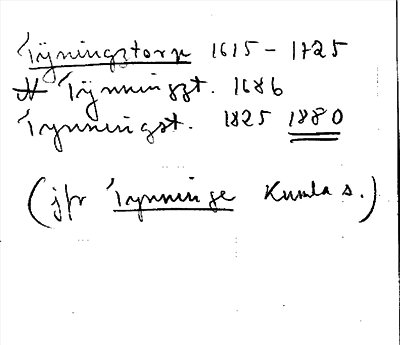 Tÿningztorp 1615 – 1725
N Tÿnningzt. 1686
Tynningst. 1825 1880
(jfr Tynninge Kumla s.)